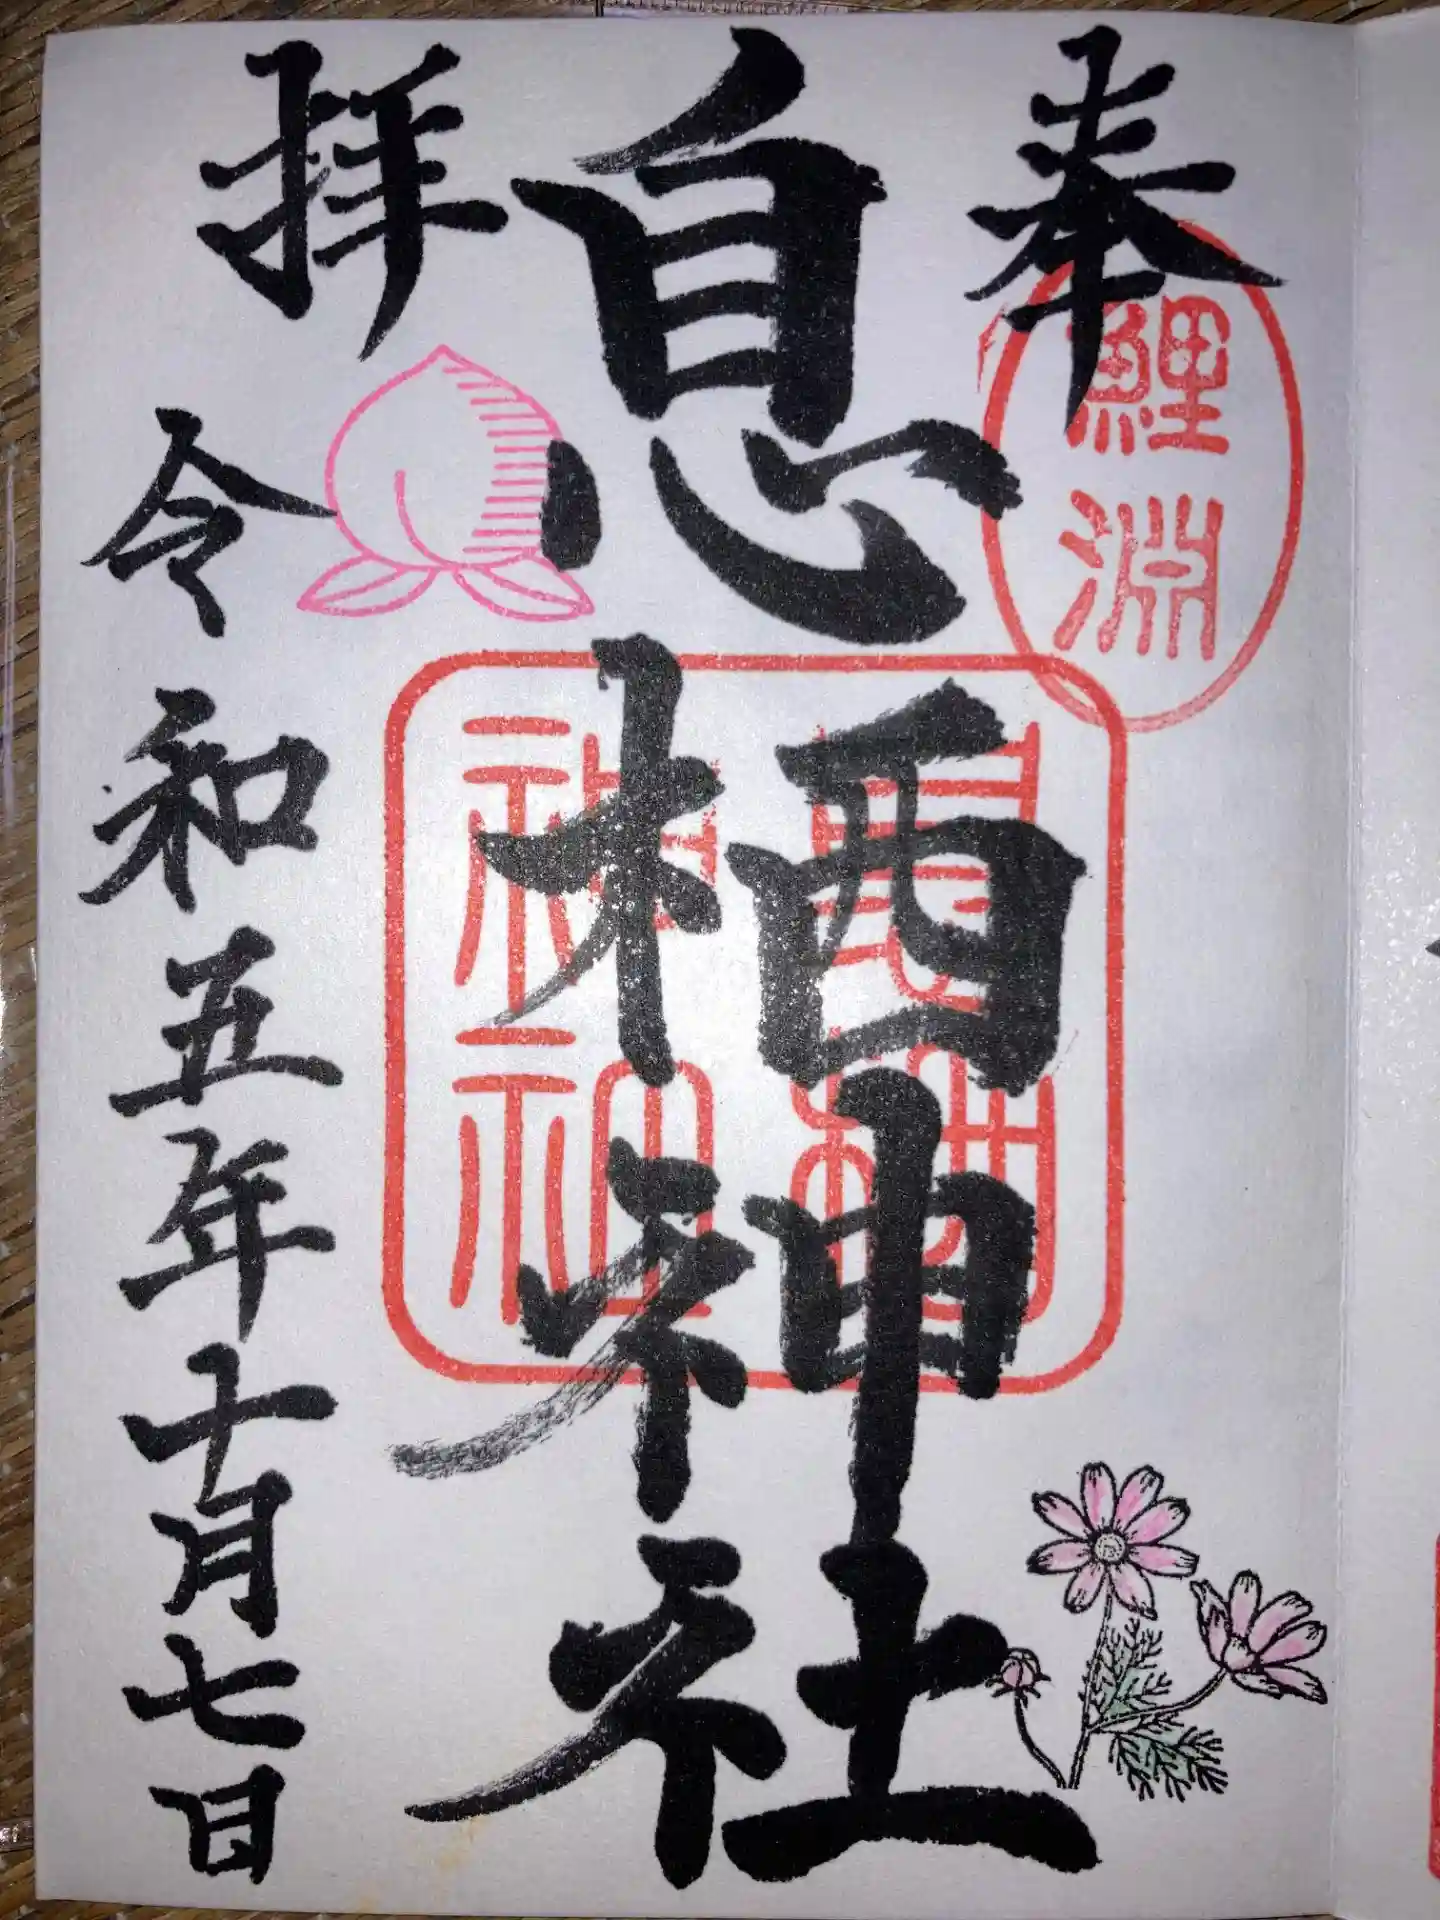 奉
鯉淵
息栖神社
息栖
神社
拝
令和五年十月七日